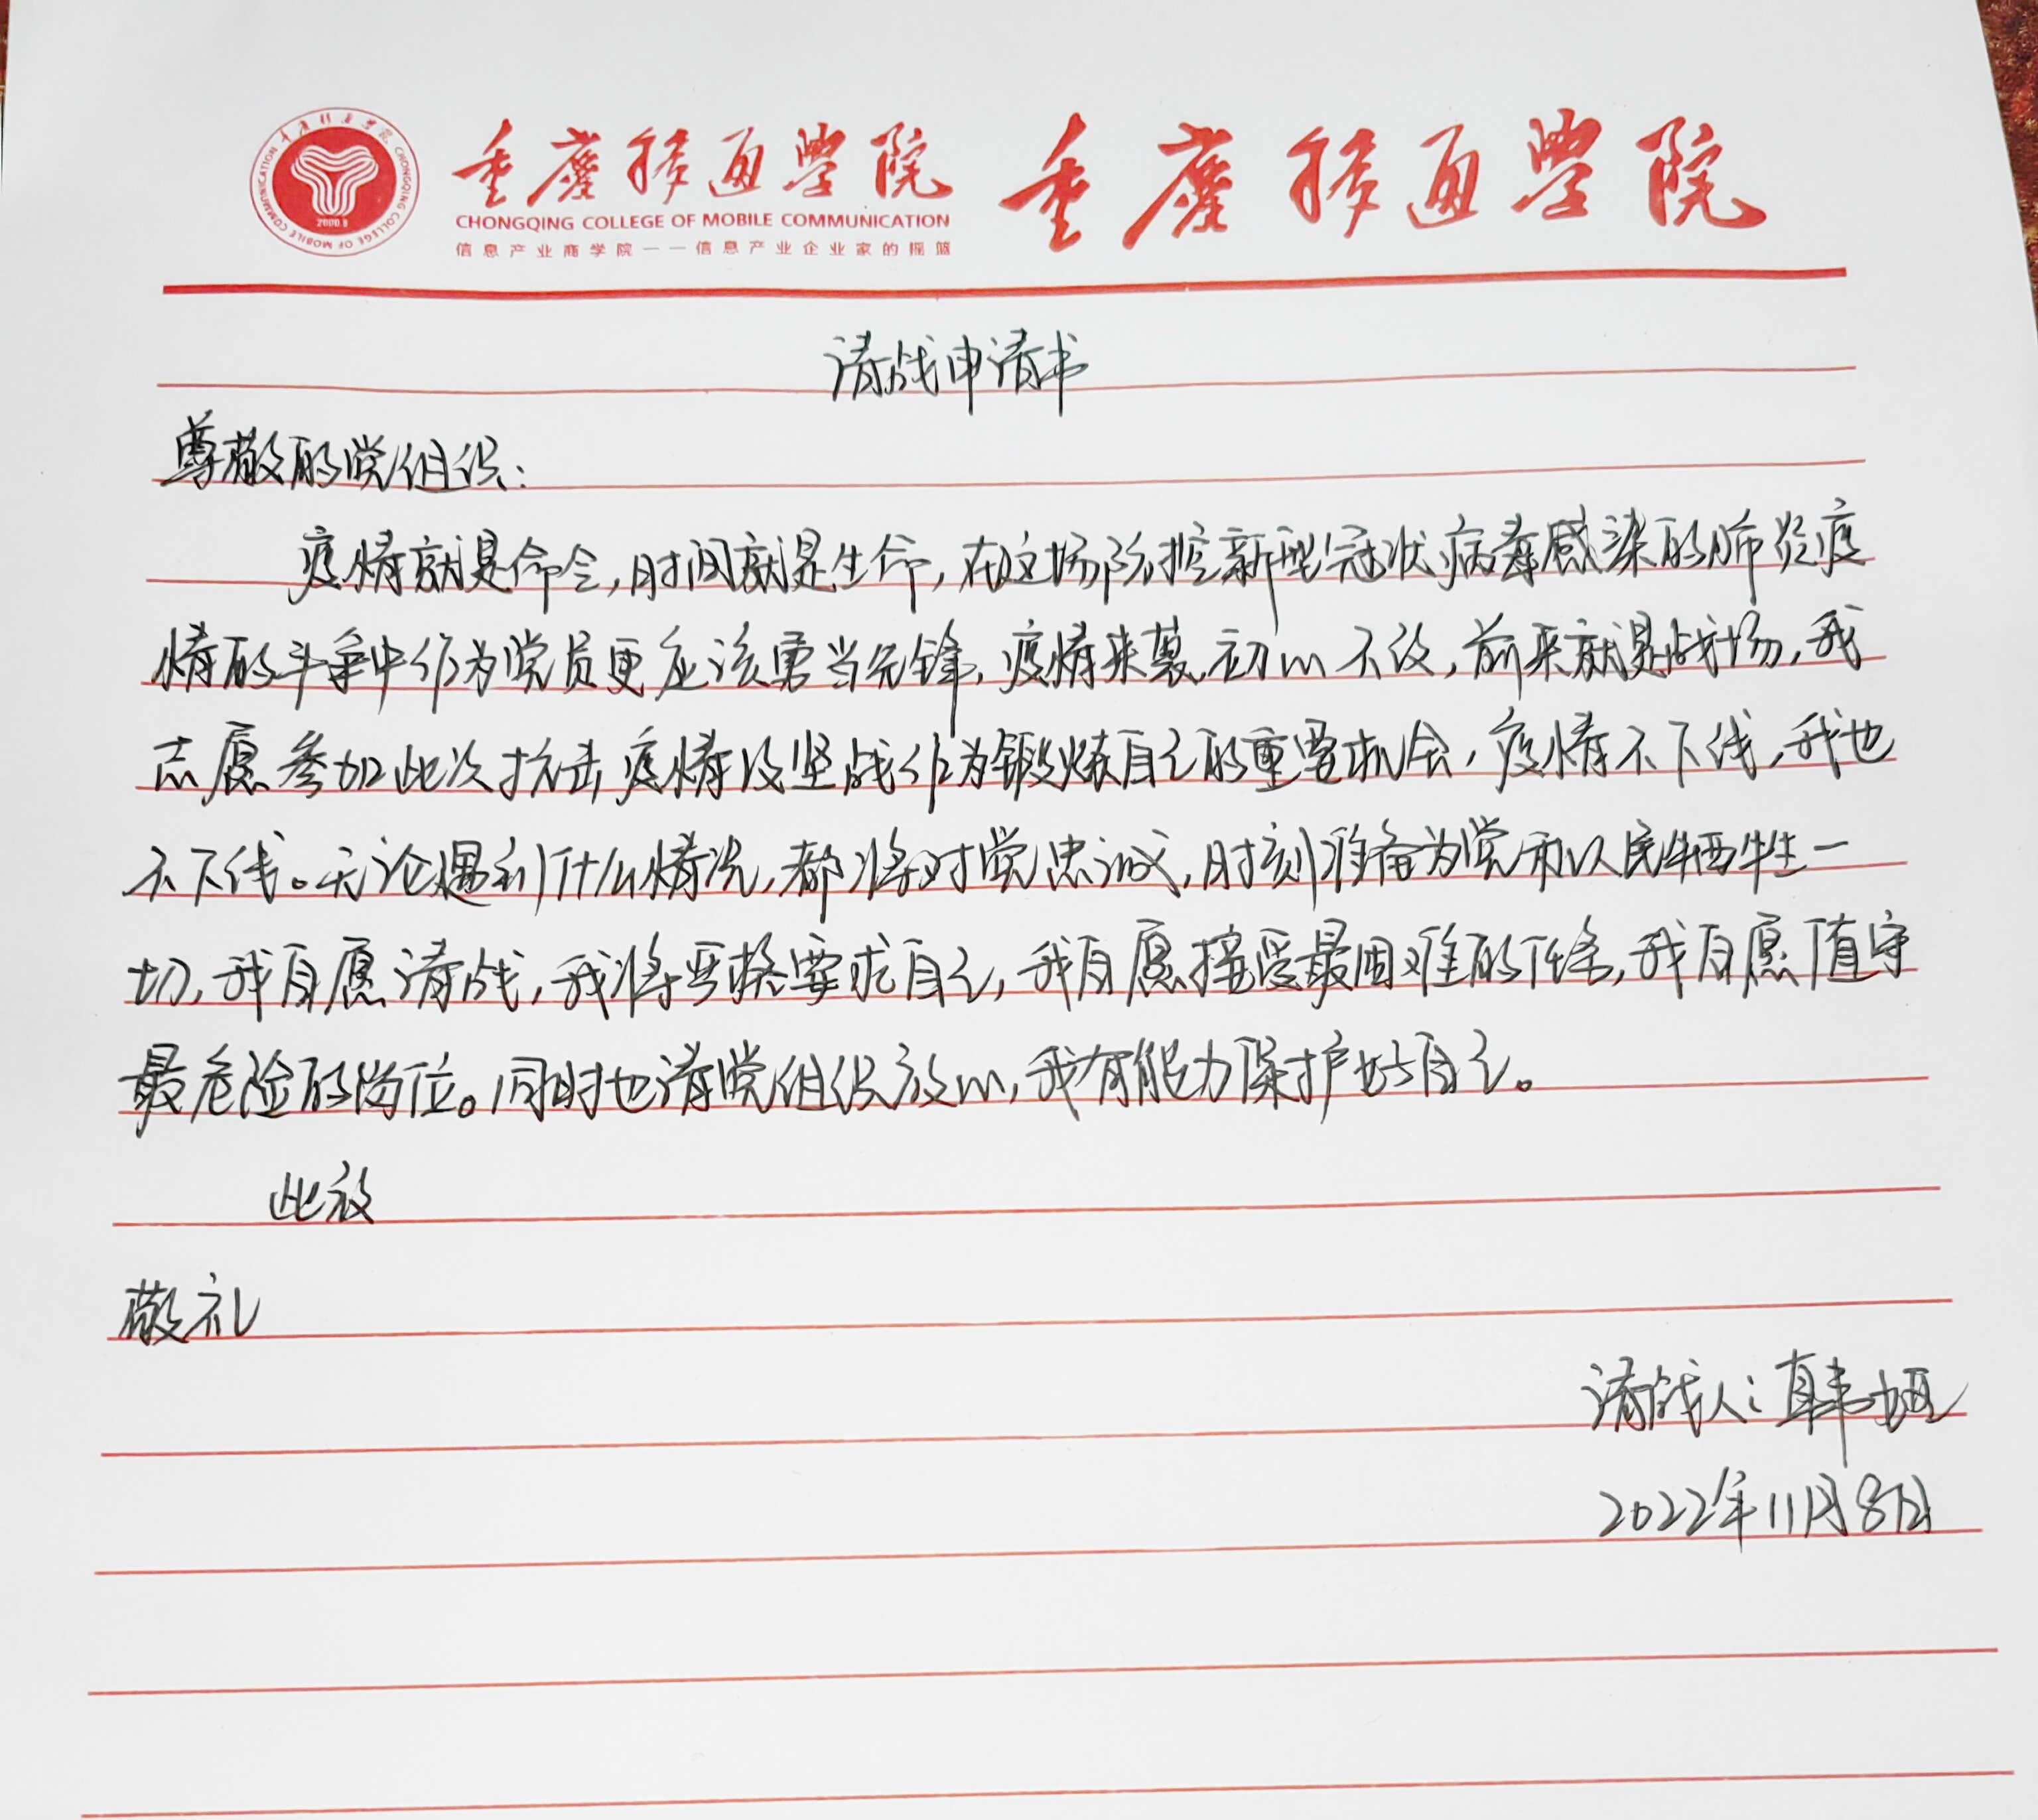 重庆移通学院 重庆移通学院
CHONGQING COLLEGE OF MOBILE COMMUNICATION
信息产业商学院——信息产业企业家的摇篮
重庆移通学院 CHONGQING COLLEGE OF MOBILE COMMUNICATION
2000.8
请战申请书
尊敬的党组织:
疫情就是命令,时间就是生命,在这场防控新型冠状病毒感染的肺炎疫
情的斗争中作为党员更应该勇当先锋,疫情来袭,初心不改,前来就是战场,我
志愿参加此次抗击疫情攻坚战作为锻炼自己的重要机会,疫情不下线,我也
不下线。无论遇到什么情况,都将对党忠诚,时刻准备为党和人民牺牲一
切,我自愿请战,我将严格要求自己,我自愿接受最困难的任务,我自愿值守
最危险的岗位。同时也请党组织放心,我有能力保护好自己。
此致
敬礼
请战人:韩娅
2022年11月8日